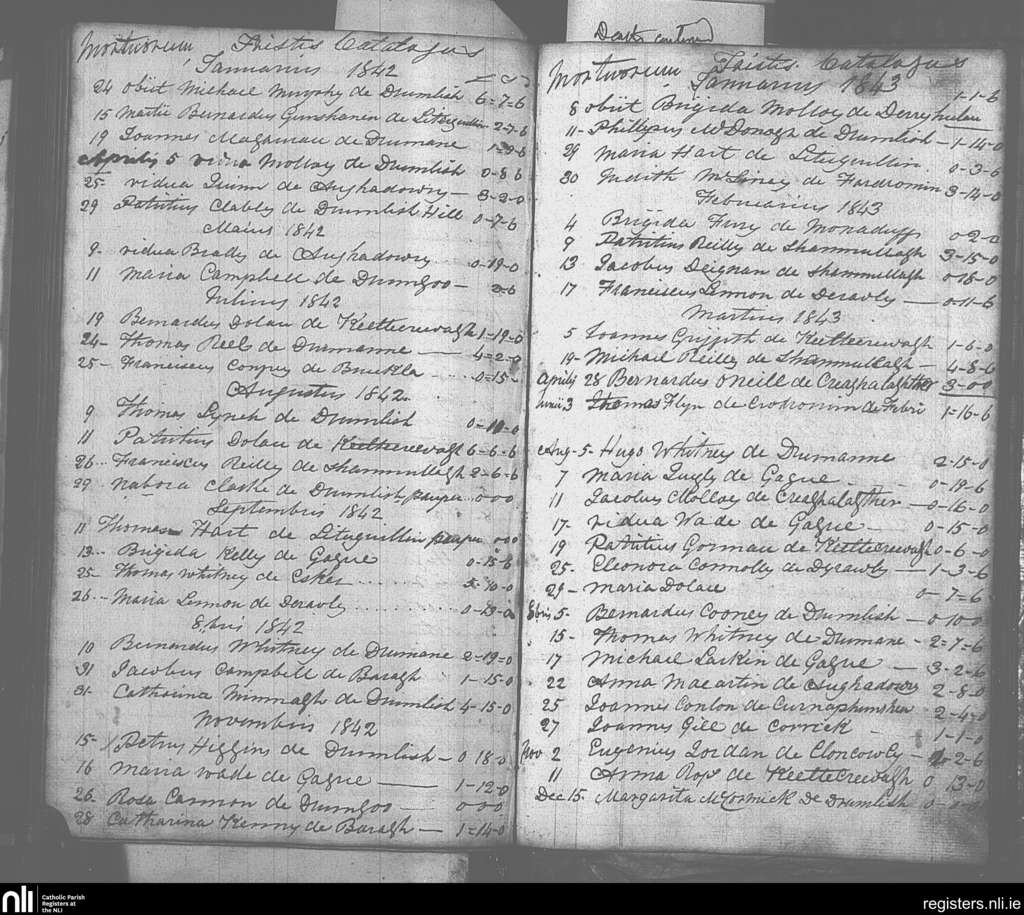 Mortuorum Tristis Catalogus
Januarius 1842
24 obiit Michael Murphy de Drumlish 6=7=6
15 Martii Bernardus de 2-7-6
19 Joannes de Drumane
Aprilis 5 vidua Molloy de Drumlish 0-8-6
25- vidua Quinn de Aughadowry - 3-2-0
29 Patritius Clabby de Drumlish Hill 0-7-6
Maius 1842
9- vidua Brady de Aughadowry 0-19-0
11 Maria Campbell de Drumgoo -
Julius 1842
19 Bernardus Dolan de Keeltecreevagh 1-19-0
24- Thomas Reel de Drumanne - 4=2-0
25- Franciscus de 0=15-
Augustus 1842
9 Thomas Lynch de Drumlish 0-10-0
11 Patritius Dolan de Keeltecreevagh 6-6-6
26- Franciscus Reilly de Shanmullagh 2-6-6
29 Nabora Clarke de Drumlish, pauper 0-0-0
Septembris 1842
11 Thomas Hart de pauper 0-0-0
13- Brigida Kelly de Gague 0-15-6
25- Thomas Whitney de Esker
26- Maria Lennon de Derawly
8bris 1842
10 Bernardus Whitney de Drumane 2=19=0
31 Jacobus Campbell de Baragh 1-15-0
31- Catharina de Drumlish 4-15-0
Novembris 1842
15- Petrus Higgins de Drumlish - 0-18-0
16 Maria Wade de Gague - 1-12-0
26- Rosa Cannon de Drumgoo - 0-0-0
28 Catharina Kenny de Baragh - 1=14-0
Mortuorum Tristis Catalogus
Januarius 1843
8 obiit Brigida Molloy de 1-1-6
11- Phillipus McDonogh de Drumlish - 1-14-0
29 Maria Hart de 0-3-6
30 Judith de Fardromin 3-14-0
Februarius 1843
4 Brigida Fury de Monaduff 0-2-0
9 Patritius Reilly de Shanmullagh 3-15-0
13 Jacobus Deignan de Shanmullagh 0-18-0
17 Franciscus Lennon de Derawly - 0-11-6
Martius 1843
5 Joannes Griffith de Keeltecreevagh 1-6-0
19- Michael Reilly de Shanmullagh - 4-8-6
Aprilis 28 Bernardus ONeill de Creaghalaghther 3-0-0
Junii 3 Thomas Flyn de 1-16-6
Aug- 5- Hugo Whitney de Drumanne 2-15-0
7 Maria de Gague - 0-19-6
11 Jacobus Molloy de Creaghalaghther - 0-16-0
17- vidua Wade de Gague - 0-15-0
19 Patritius Gorman de Keeltecreevagh 0-6-0
25- Eleonora Connolly de Dyrawly - 1-3-6
29- Maria Dolan 0-7=6
8bris 5- Bernardus Cooney de Drumlish - 0-10-0
15- Thomas Whitney de Drumane - 2=7=6
17 Michael Larkin de Gague - 3-2-6
22 Anna Macartin de Aughadowry 2-8-0
25 Joannes Conlon de 2-4-0
27 Joannes Gill de Corrick - 1-1-0
Nov 2 Eugenius Jordan de Cloncowly -
11 Anna Ross de Keeltecreevagh 0 13-0
Dec 15- Margarita McCormick de Drumlish
nli Catholic Parish
Registers at
the NLI
registers.nli.ie